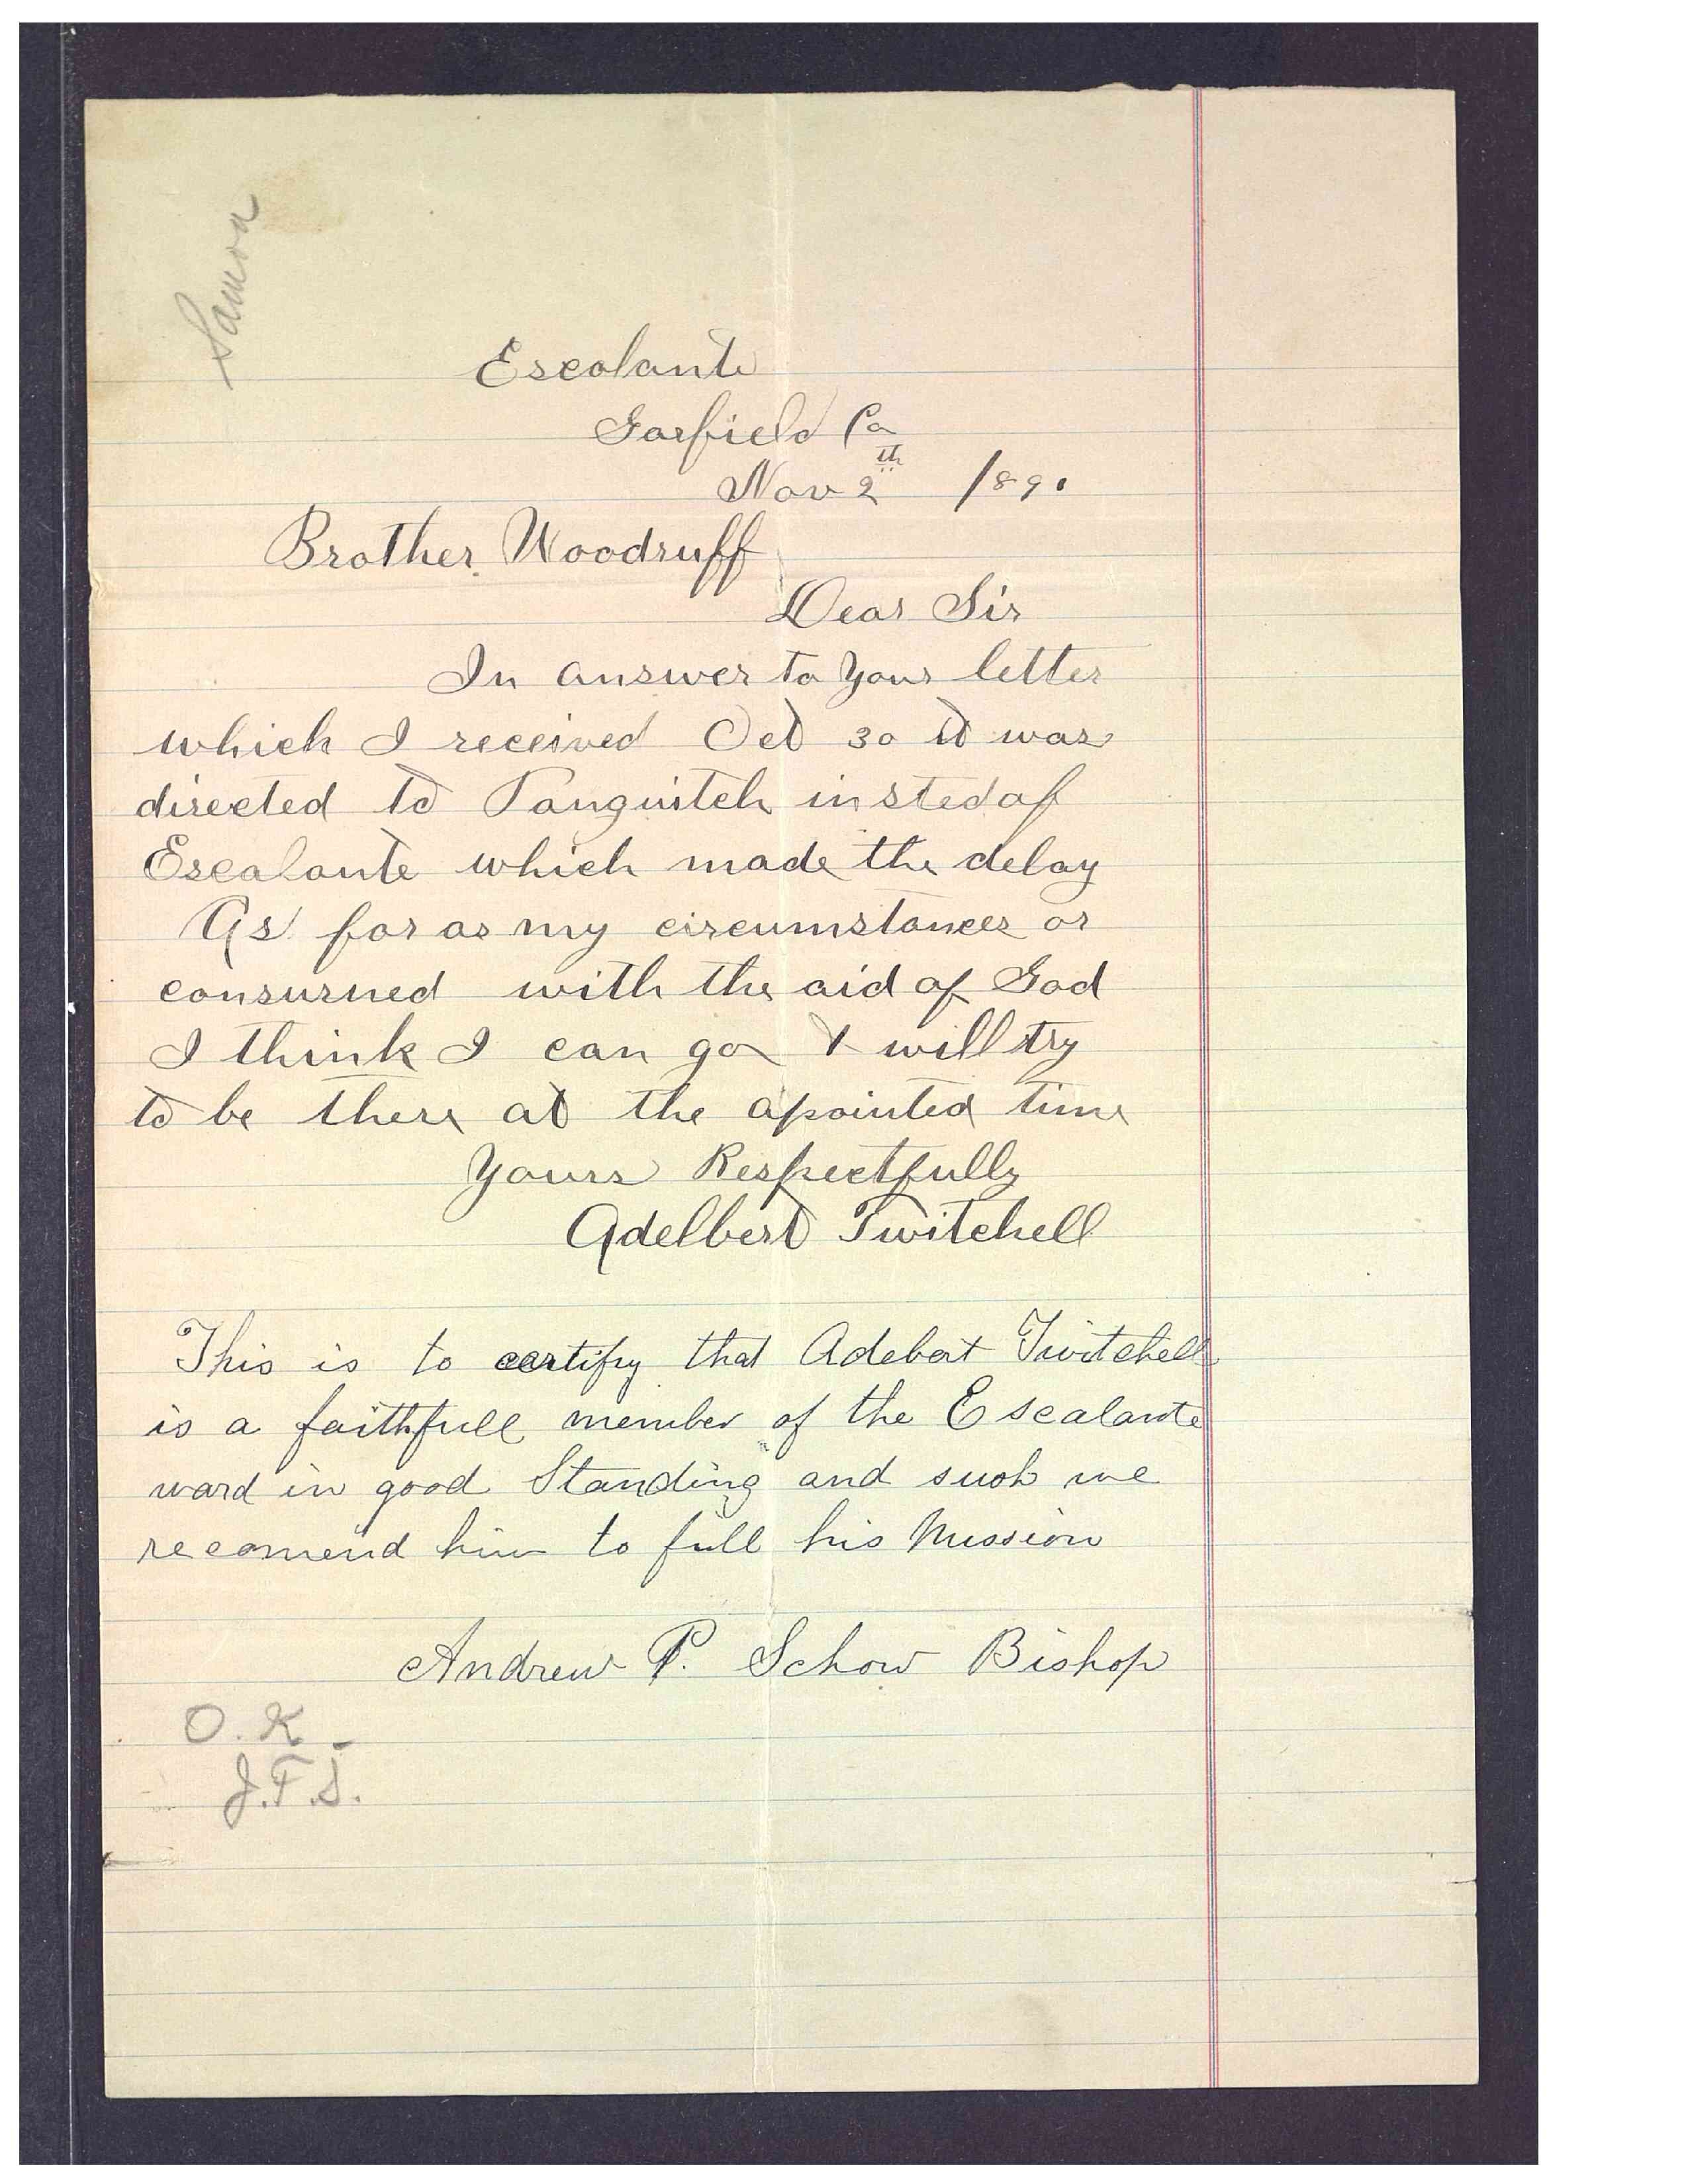 Samoa
Escalante
Garfield Co
Nov 2th 1890
Brother Woodruff
Dear Sir
In answer to Your letter
which I received Oct 30 it was
directed to Panguitch insted of
Escalante which made the delay
As far as my circumstances ar
consurned with the aid of God
I think I can go & will try
to be there at the apointed time
Yours Respectfully
Adelbert Twitchell
This is to certify that Adebert Twitchell
is a faithfull member of the Escalante
ward in good Standing and such we
recomend him to full his Mission
Andrew P. Schow Bishop
O.K-
J.F.S.